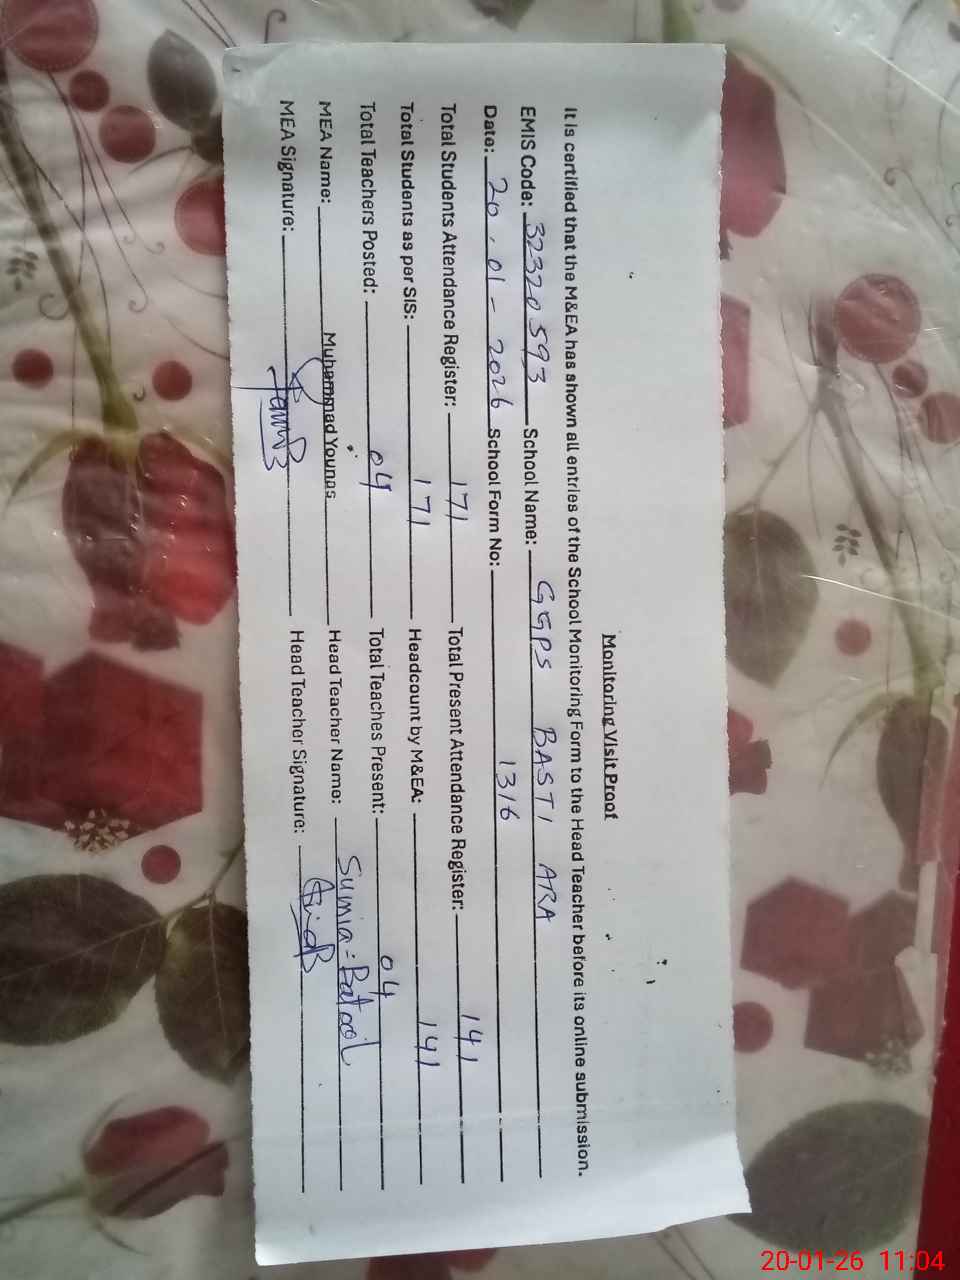 Monitoring Visit Proof
It is certified that the M&EA has shown all entries of the School Monitoring Form to the Head Teacher before its online submission.
EMIS Code: 32320593 School Name: GGPS BASTI ARA
Date: 20.01-2026 School Form No: 1316
Total Students Attendance Register: 171 Total Present Attendance Register: 141
Total Students as per SIS: 171 Headcount by M&EA: 141
Total Teachers Posted: 04 Total Teaches Present: 04
MEA Name: Muhammad Younas Head Teacher Name: Sumia = Batool
MEA Signature: Head Teacher Signature:
20-01-26 11:04